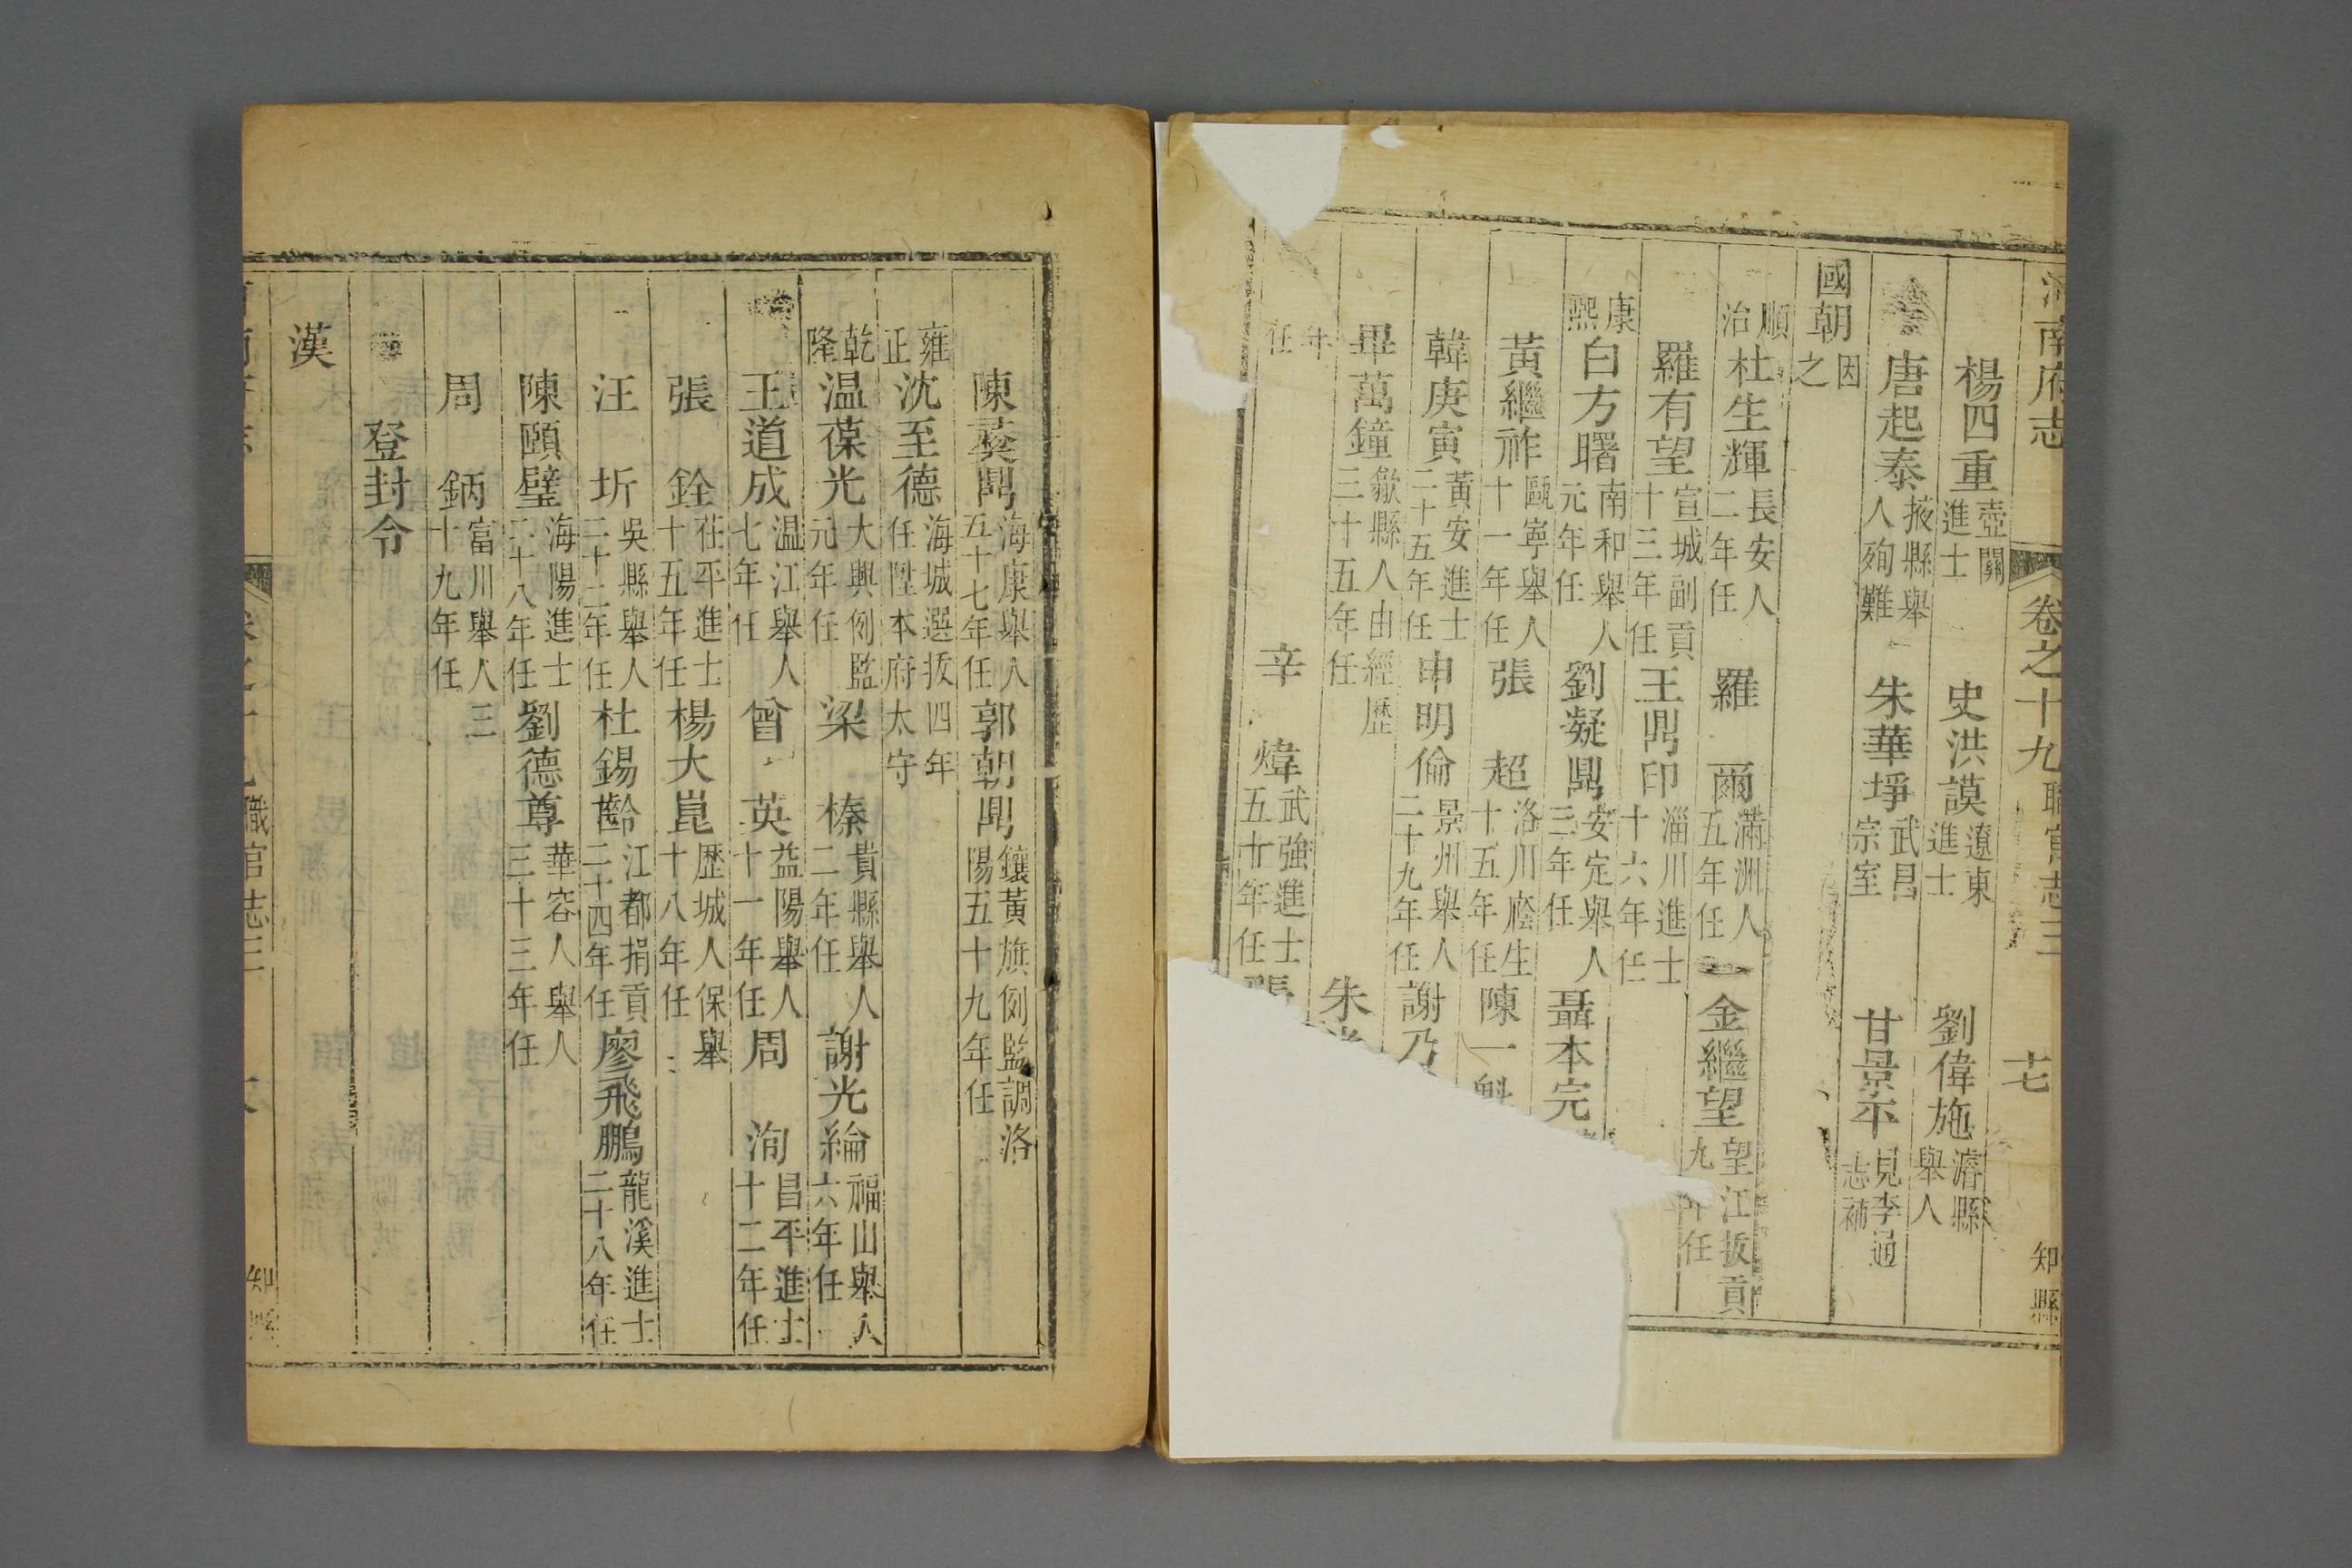 河南府志 卷之十九職官志三 十七 知縣
楊四重 壺關進士 史洪謨 遼東進士 劉偉施 濬縣舉人
唐起泰 掖縣舉人殉難 朱華埩 武昌宗室 甘景示 見李通志補
國朝 因之
順治 杜生輝 長安人二年任 羅爾 滿洲人五年任 金繼望 望江拔貢九年任
羅有望 宣城副貢十三年任 王鼎印 淄川進士十六年任
康熙 白方曙 南和舉人元年任 劉凝鼎 安定舉人三年任 聶本完
黃繼祚 甌寧舉人十一年任 張超 洛川廕生十五年任 陳一魁
韓庚寅 黃安進士二十五年任 申明倫 景州舉人二十九年任 謝乃
畢萬鐘 歙縣人由經歷三十五年任 朱
年任 辛煒 武強進士五十年任 張
陳蕤鼎 海康舉人五十七年任 郭朝鼎 鑲黃旗例監調洛陽五十九年任
雍正 沈至德 海城選拔四年任陞本府太守
乾隆 温葆光 大興例監元年任 梁榛 貴縣舉人二年任 謝光綸 福山舉人六年任
王道成 温江舉人七年任 曾英 益陽舉人十一年任 周洵 昌平進士十二年任
張銓 茌平進士十五年任 楊大崑 歷城人保舉十八年任
汪圻 吳縣舉人二十二年任 杜錫齡 江都捐貢二十四年任 廖飛鵬 龍溪進士二十八年任
陳頤璧 海陽進士二十八年任 劉德尊 華容人舉人三十三年任
周鈵 富川舉人三十九年任
登封令
漢
職官志三 知縣